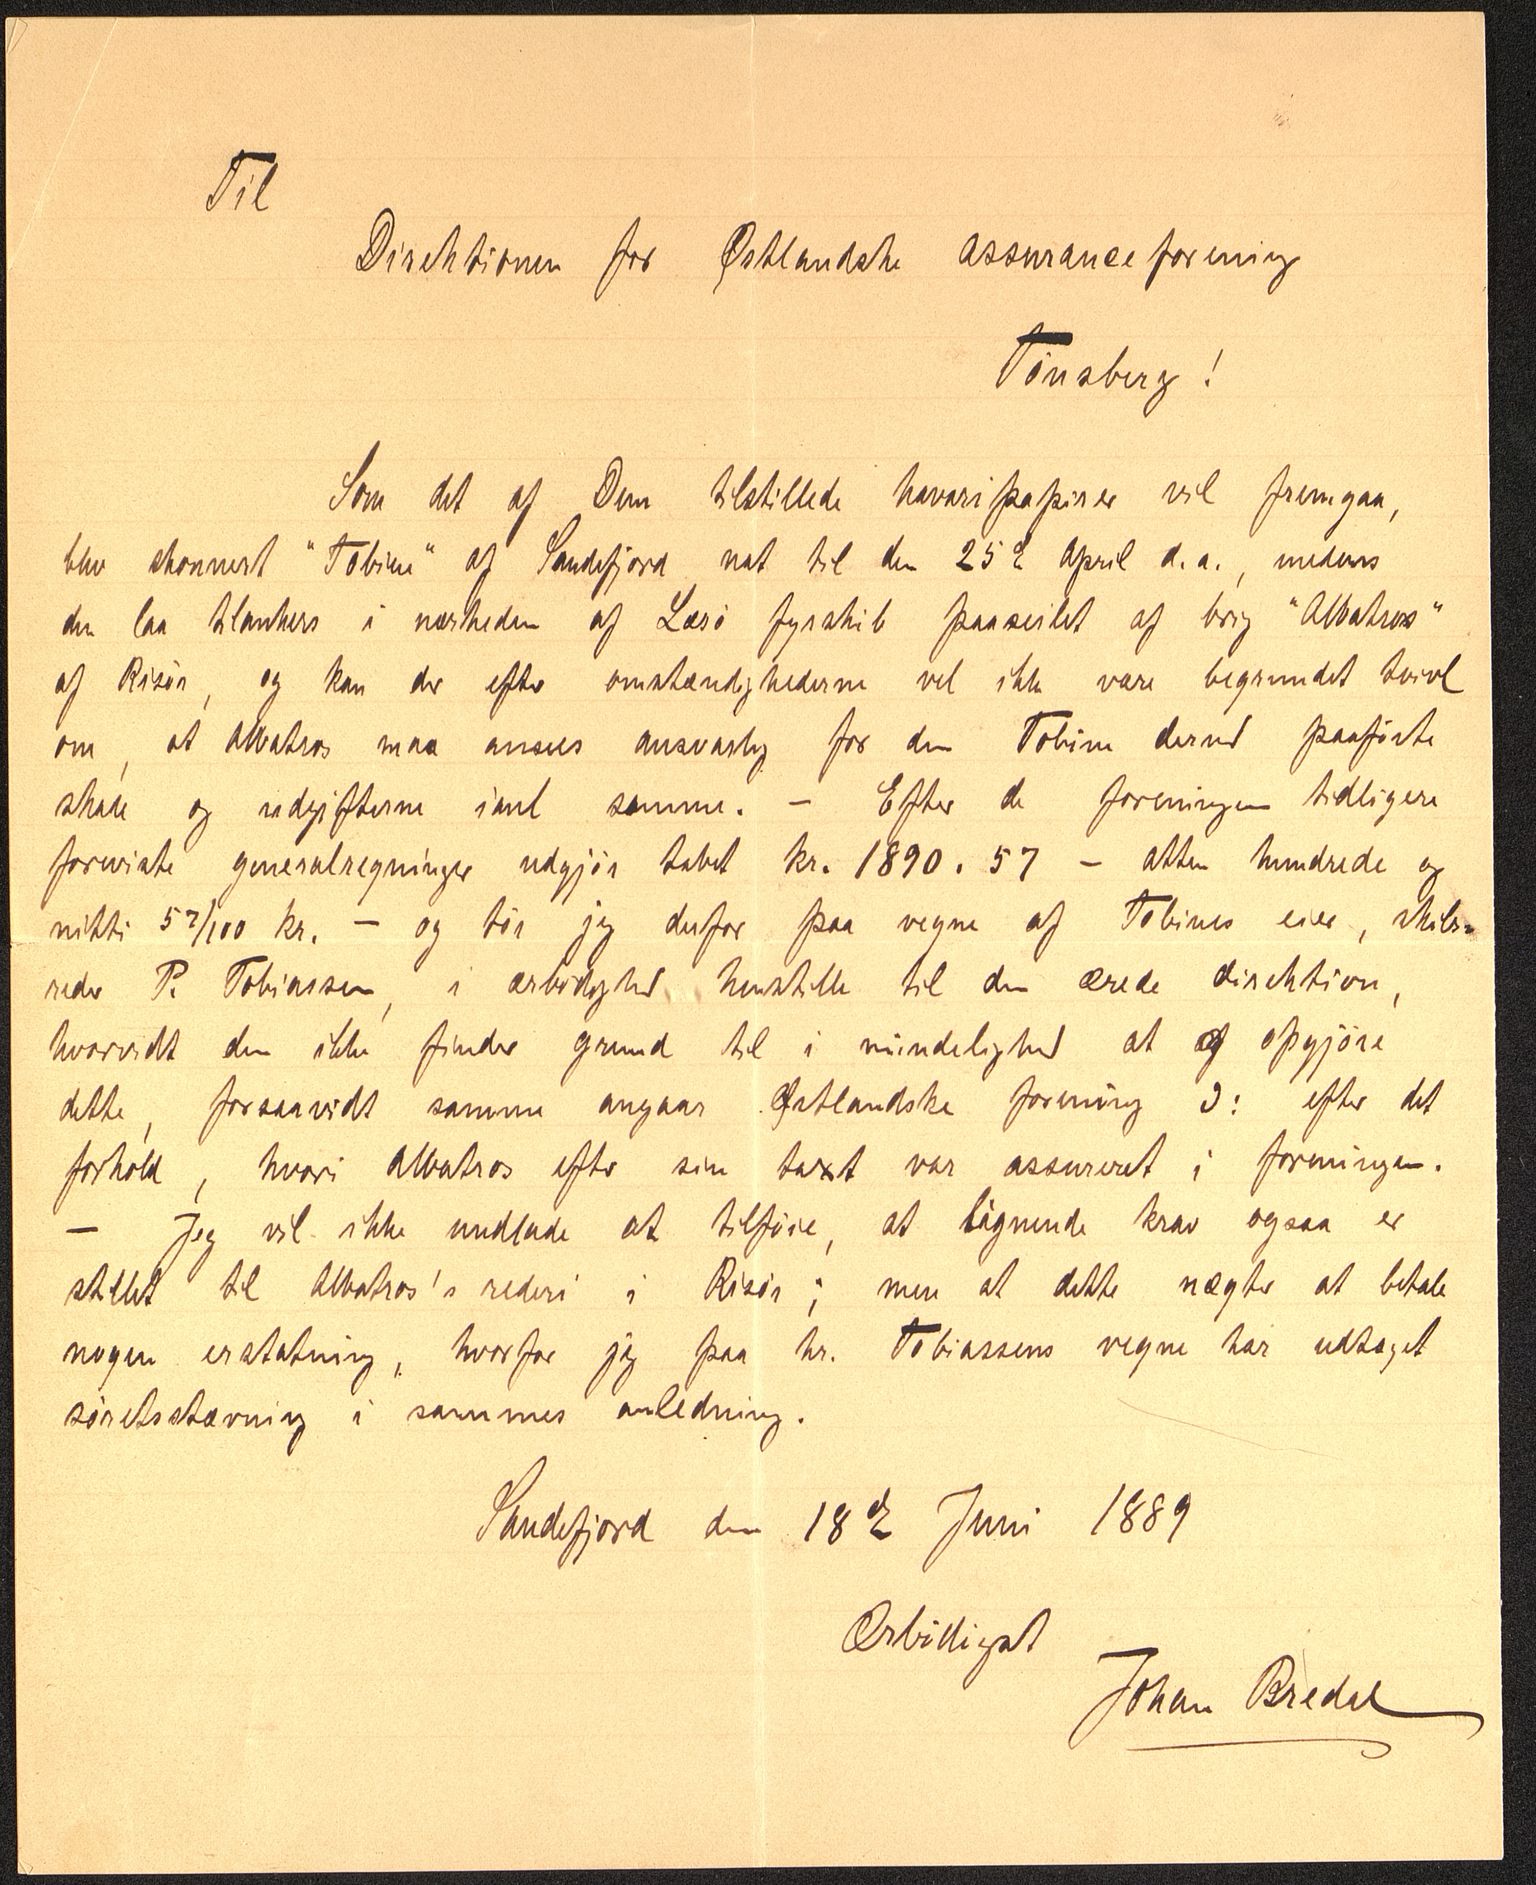 Til
Direktionen for Østlandske assuranceforening
Tönsberg!
Som det af Dem tilstillede havaripapirer vil fremgaa,
blev skonnert "Tobine" af Sandefjord nat til den 25de april d.a., medens
den laa tilankers i nærheden af Læsö fyrskib paaseilet af brig "Albatros"
af Risör, og kan der efter omstændighederne vel ikke være begrundet tvivl
om, at Albatros maa ansees ansvarlig for den Tobine derved paaförte
skade og udgifterne ianl samme. - Efter de foreningen tidligere
foreviste generalregninger udgjör tabet kr. 1890.57 - atten hundrede og
nitti 57/100 kr. - og tör jeg derfor paa vegne af Tobines eier, skibs-
reder P. Tobiassen, i ærbödighed henstille til den ærede direktion,
hvorvidt den ikke finder grund til i mindelighed at opgjöre
dette, forsaavidt samme angaar Østlandske forening ɔ: efter det
forhold, hvori Albatros efter sin taxt var assureret i foreningen.
- Jeg vil ikke undlade at tilföie, at lignende krav ogsaa er
stillet til Albatros's rederi i Risör; men at dette nægter at betale
nogen erstatning, hvorfor jeg paa hr. Tobiassens vegne har udtaget
söretsstævning i sammes anledning.
Sandefjord den 18de Juni 1889
Ærbödigst
Johan Bredal